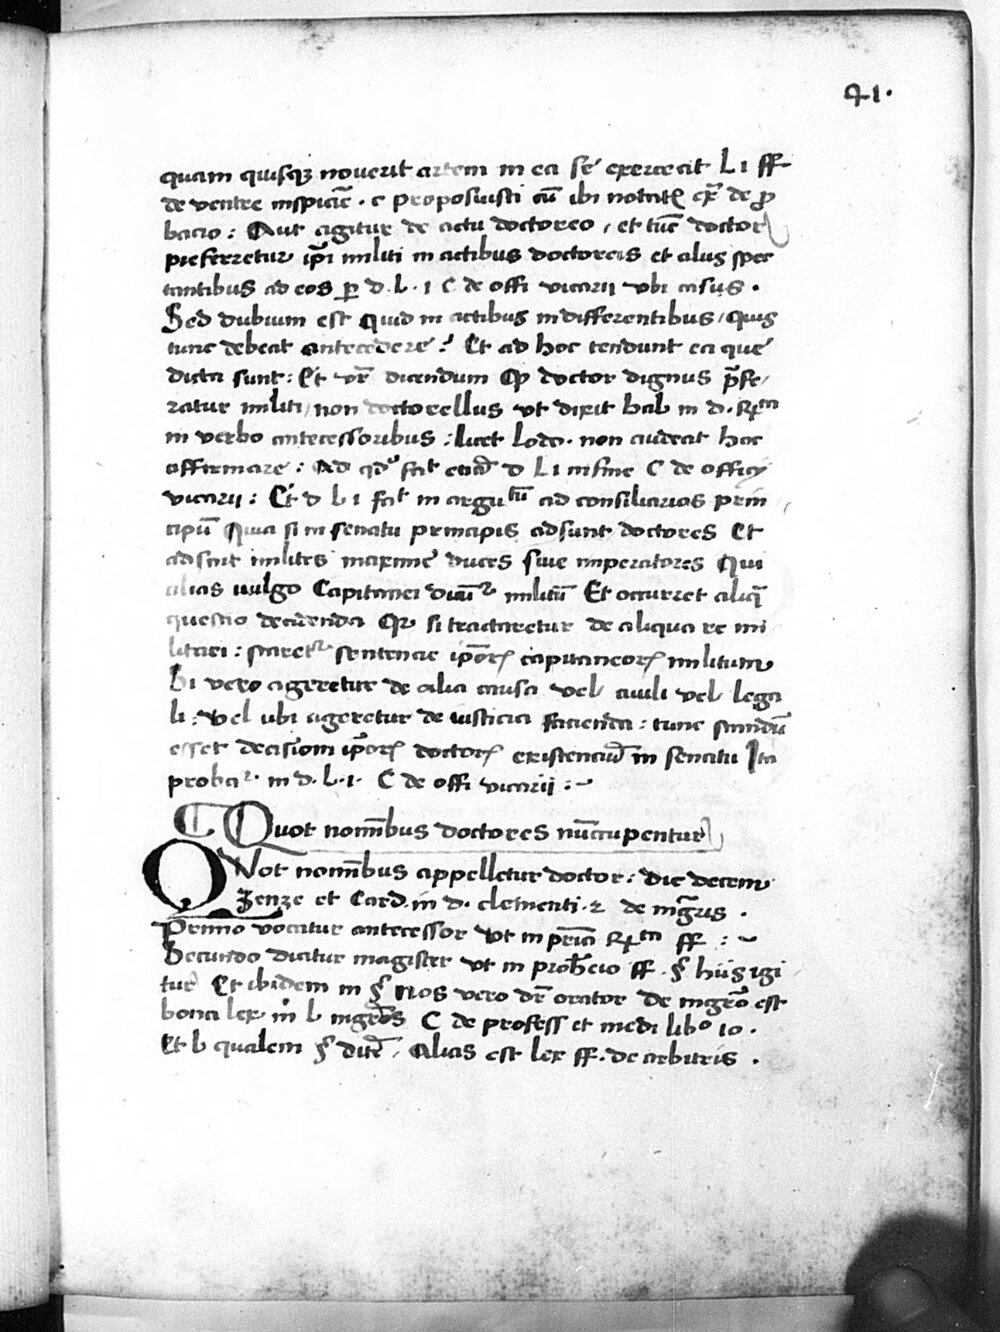 41.
quam quisq; noverit artem in ea se exerceat L i ff
de ventre inspiciē . c proposuisti cū ibi notatꝭ ex̄ de p̱
bacio : Aut agitur de actu doctoreo , et tūc doctor
preferretur ip̄i militi in actibus doctoreis et aliis spec
tantibus ad eos p̱ d. L . i C de offi vicarii ubi casus .
Sed dubium est quid in actibus indifferentibus , quis
tunc debeat antecedere ? Et ad hoc tendunt ea que
dicta sunt : Et vr̄ dicendum ꝙ doctor dignus p̄fe,
ratur militi , non doctorellus ut dixit bal in d. Rͣ
in verbo antecessoribus : licet Lodo . non audeat hoc
affirmare : Ad qd° fat̄ d L i in fine C de officij
vicarii : Et d L i fat̄ in argutū ad consiliarios prin
cipū Quia si in senatu principis adsunt doctores Et
adsint milites maxime duces sive imperatores Qui
alias vulgo Capitanei dicūtꝰ militū Et occurret aliq̄
questio decidenda Qꝛ si tractaretur de aliqua re mi
litari : staretꝰ sentencie ip̄oꝝ capitaneoꝝ militum
Si vero ageretur de alia causa vel civili vel lega
li : vel ubi ageretur de iusticia facienda : tunc standū
esset decisioni ip̄oꝝ doctoꝝ existenciū in senatu Ita
probaꝰ . in d . L . i . C de offi vicarii : ~
¶ Quot nomībus doctores nūcupentur
QVot nomībus appelletur doctor : dic decem
Zenze et Card. in d. clementi . 2 de mḡris .
Primo vocatur antecessor ut in pric̄ Rͣ ff : ~
Secundo dicitur magister ut in prohēio ff . § hiis igi
tur Et ibidem in § nos vero dr̄ orator de mgr̄o est
bona lex in l mgrōs C de profess et medi lib° 10 .
Et l qualem § dite᷑ , Alias est lex ff . de arbitris .